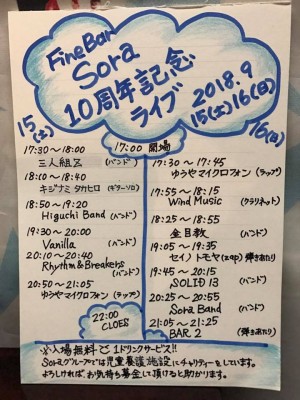 Fine Bar
Sora
10周年記念
ライブ
2018.9
15(土)16(日)
15(土)
17:30〜18:00
三人組Z (バンド)
18:00〜18:40
キジナミ タカヒロ (ギターソロ)
18:50〜19:20
Higuchi Band (バンド)
19:30〜20:00
Vanilla (バンド)
20:10〜20:40
Rhythm&Breakers (バンド)
20:50〜21:05
ゆうやマイクロフォン (ラップ)
17:00 開場
16(日)
17:30〜17:45
ゆうやマイクロフォン (ラップ)
17:55〜18:15
Wind Music (クラリネット)
18:25〜18:55
金目教 (バンド)
19:05〜19:35
セイノトモヤ(zap) (弾きあたり)
19:45〜20:15
SOLID 13 (バンド)
20:25〜20:55
Sora Band (バンド)
21:05〜21:25
BAR 2 (弾きあたり)
22:00
CLOES
※入場無料で1ドリンクサービス!!
Soraグループでは児童養護施設にチャリティーをしています。
よろしければ、お気持ち募金して頂けると助かります。